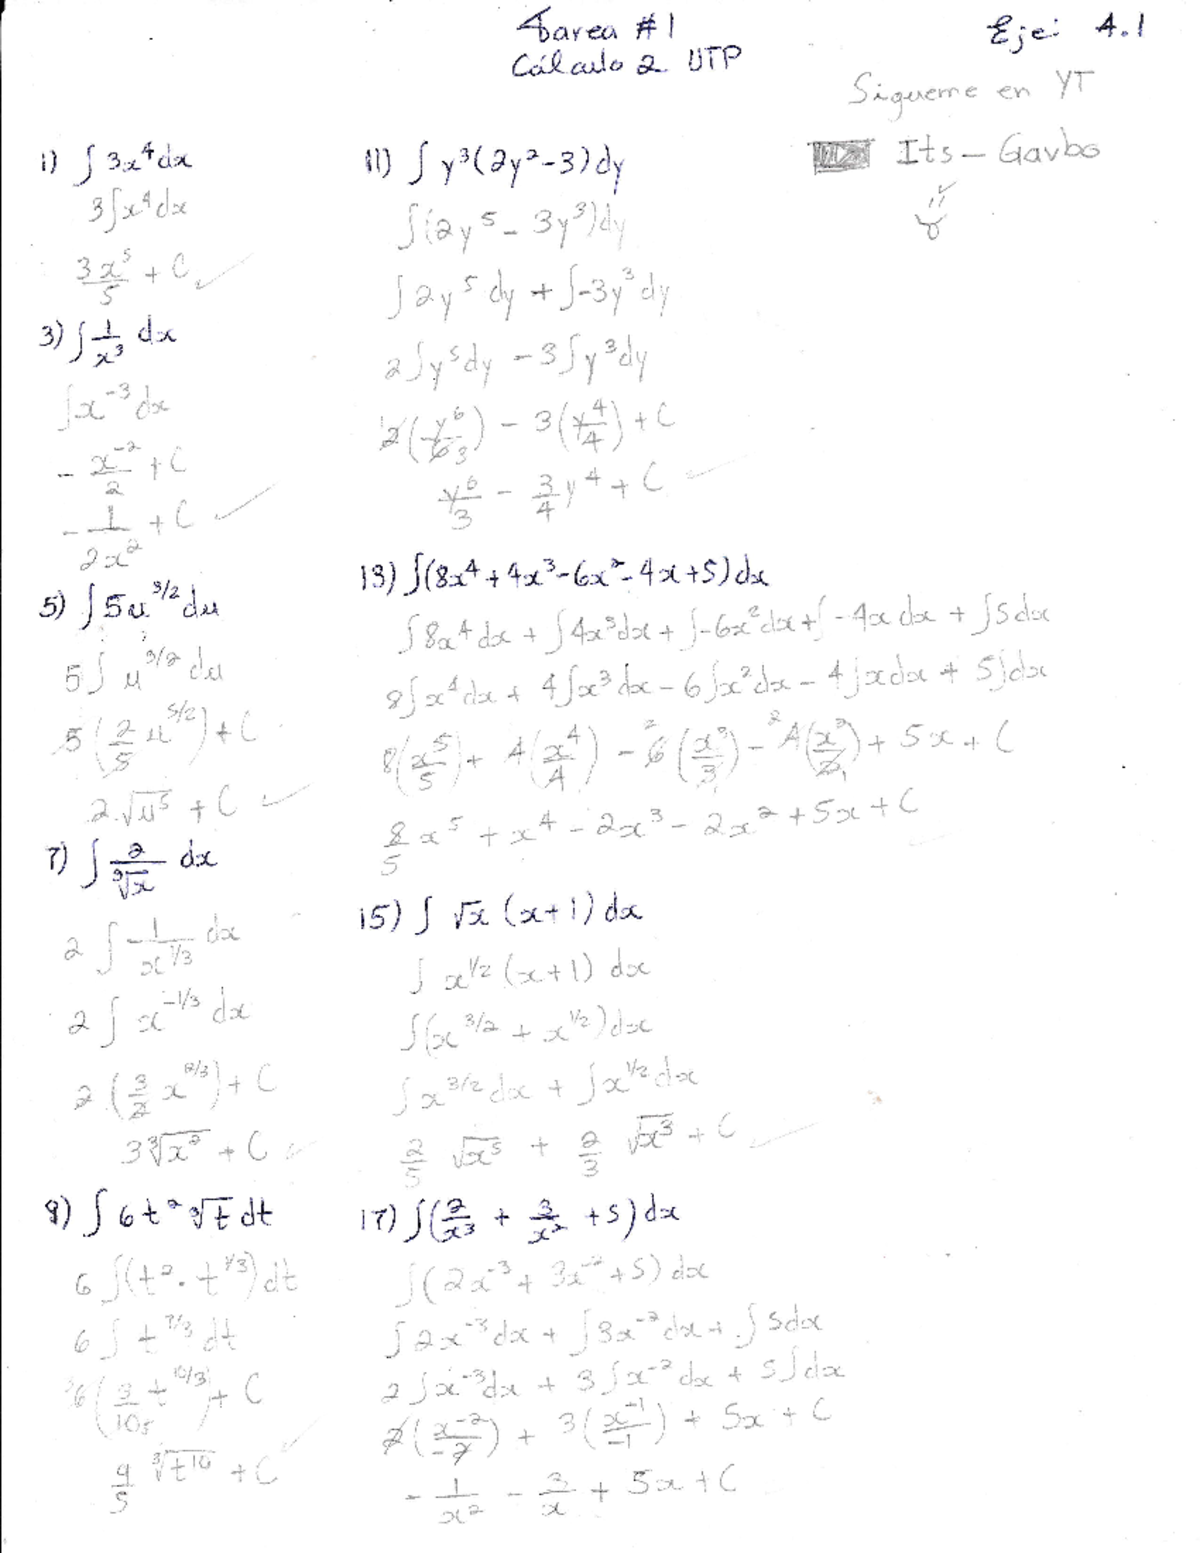 Tarea #1
Cálculo 2 UTP
Eje: 4.1
Sigueme en YT
Its-Gavbo
1) ∫ 3x⁴dx
3∫x⁴dx
3x⁵/5 + C ✓
3) ∫ 1/x³ dx
∫x⁻³dx
- x⁻²/2 + C
- 1/2x² + C ✓
5) ∫ 5u^3/2 du
5∫ u^3/2 du
5(2/5 u^5/2) + C
2√u⁵ + C ✓
7) ∫ 2/∛x dx
2 ∫ 1/x^1/3 dx
2 ∫ x^-1/3 dx
2 (3/2 x^2/3) + C
3∛x² + C ✓
9) ∫ 6t² ∛t dt
6 ∫(t² · t^1/3) dt
6 ∫ t^7/3 dt
6 (3/10 t^10/3) + C
9/5 ∛t¹⁰ + C ✓
11) ∫ y³(2y²-3)dy
∫(2y⁵ - 3y³)dy
∫2y⁵ dy + ∫-3y³dy
2∫y⁵dy - 3∫y³dy
2(y⁶/6) - 3(y⁴/4) + C
y⁶/3 - 3/4 y⁴ + C ✓
13) ∫(8x⁴+4x³-6x²-4x+5)dx
∫8x⁴dx + ∫4x³dx + ∫-6x²dx + ∫-4x dx + ∫5dx
8∫x⁴dx + 4∫x³dx - 6∫x²dx - 4∫xdx + 5∫dx
8(x⁵/5) + 4(x⁴/4) - 6(x³/3) - 4(x²/2) + 5x + C
8/5 x⁵ + x⁴ - 2x³ - 2x² + 5x + C
15) ∫ √x (x+1) dx
∫ x^1/2 (x+1) dx
∫(x^3/2 + x^1/2)dx
∫x^3/2 dx + ∫x^1/2 dx
2/5 √x⁵ + 2/3 √x³ + C ✓
17) ∫(2/x³ + 3/x² + 5)dx
∫(2x⁻³ + 3x⁻² + 5) dx
∫2x⁻³dx + ∫3x⁻²dx + ∫5dx
2∫x⁻³dx + 3∫x⁻²dx + 5∫dx
2(x⁻²/-2) + 3(x⁻¹/-1) + 5x + C
- 1/x² - 3/x + 5x + C